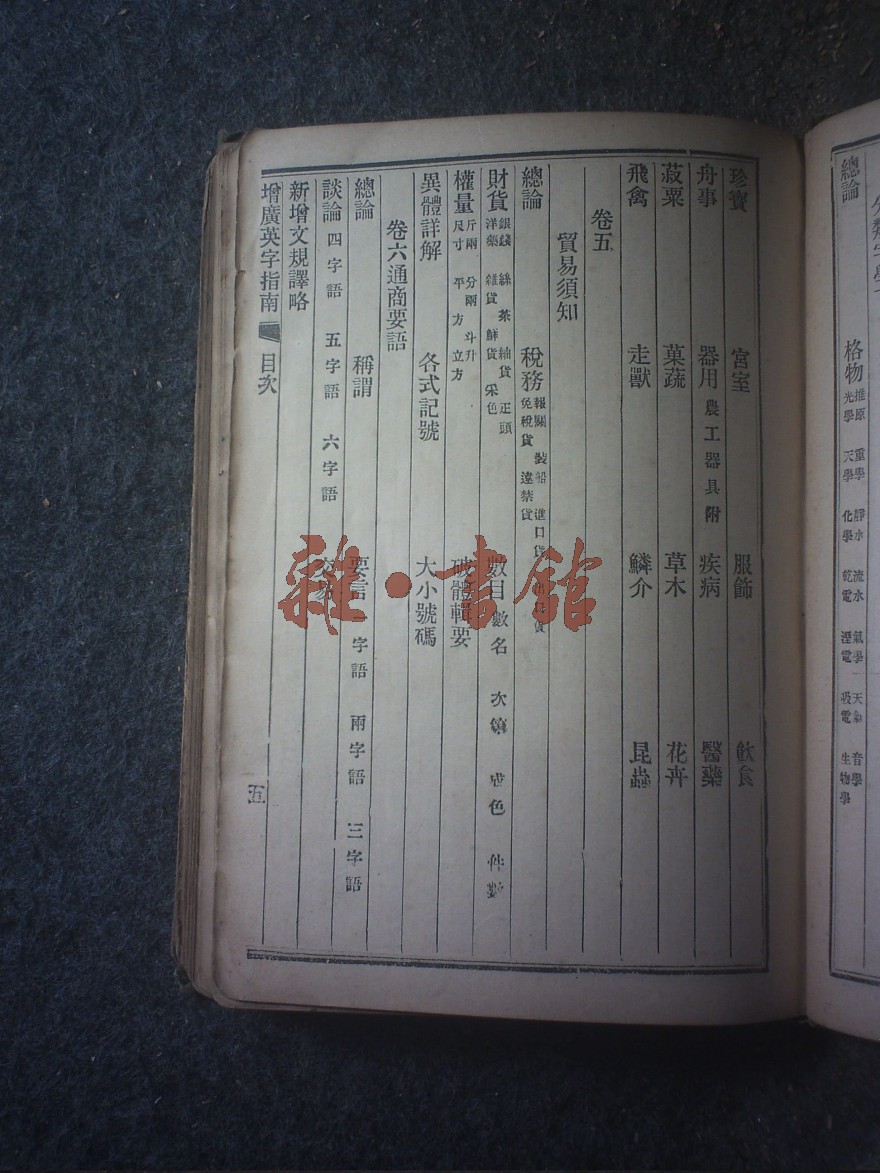 總論
格物 推原 重學 靜水 流水 氣學 天氣 音學
光學 天學 化學 乾電 溼電 吸電 生物學
珍寶 宮室 服飾 飲食
舟事 器用 農工器具附 疾病 醫藥
菽粟 菓蔬 草木 花卉
飛禽 走獸 鱗介 昆蟲
卷五
貿易須知
總論 稅務 報關 裝船 進口貨
免稅貨 違禁貨
財貨 銀錢 絲茶 紬貨 疋頭
洋藥 雜貨 鮮貨 采色 數目 數名 次第 色 件數
權量 斤兩 分兩 斗升
尺寸 平方 立方 破體輯要
異體詳解 各式記號 大小號碼
卷六通商要語
總論 稱謂 要言 一字語 兩字語 三字語
談論 四字語 五字語 六字語 交易
新增文規譯略
增廣英字指南 目次 五
雜·書館